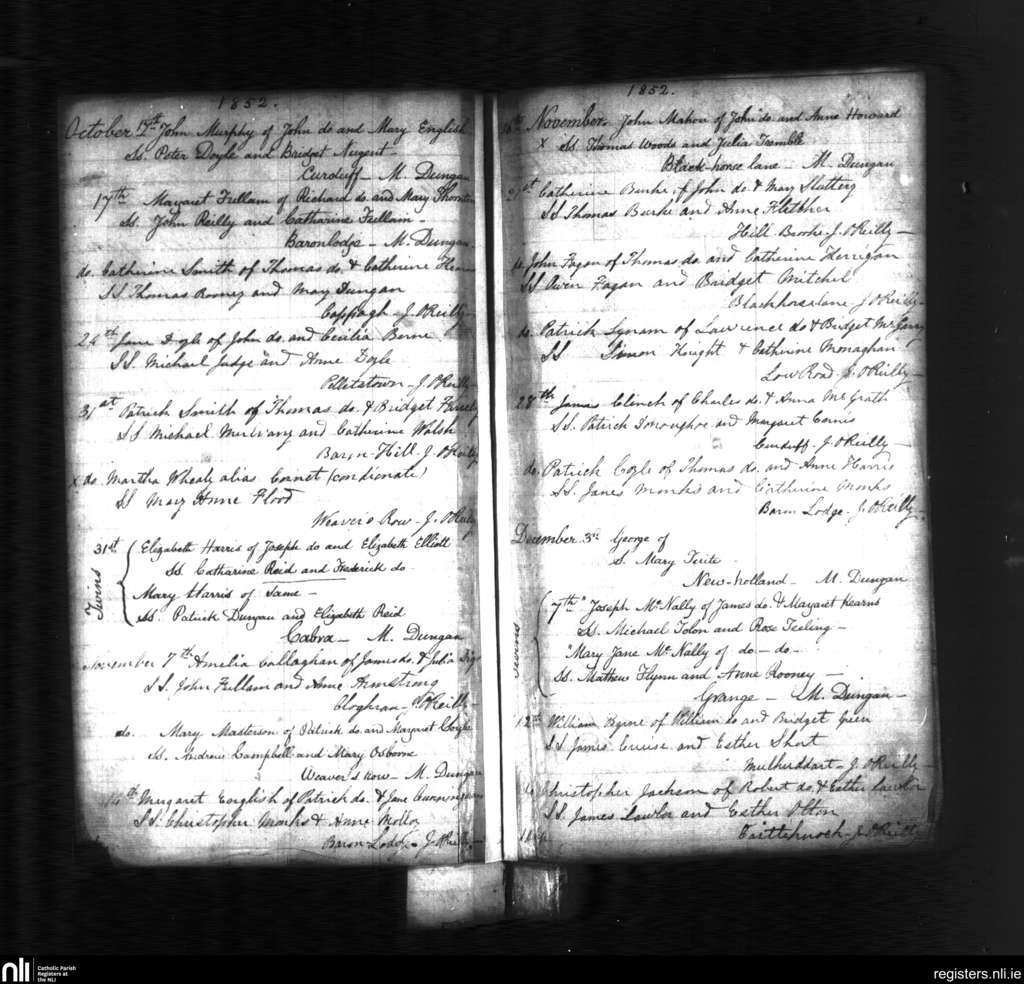 1852.
October 12th John Murphy of John do and Mary English
Ss. Peter Doyle and Bridget Nugent
Curduff - M. Dungan
17th Margaret Fullam of Richard do and Mary Thornton
Ss. John Reilly and Catharine Fullam -
Baronlodge - M. Dungan
do. Catherine Smith of Thomas do. & Catherine
SS Thomas Rooney and Mary Dungan
Coppagh - J. O'Reilly -
24th Jane of John do. and Cicilia Berne
SS. Michael Judge and Anne Doyle
Pelletstown - J. O'Reilly
31st Patrick Smith of Thomas do. & Bridget
SS Michael Mulvany and Catherine Walsh
Baron-Hill. J. O'Reilly
x do. Martha Wheale alias (conditionate)
SS Mary Anne Flood
Weaver's Row - J. O'Reilly
Twins
31st Elizabeth Harris of Joseph do and Elizabeth Elliott
Ss. Catharine Reid and Frederick do -
Mary Harris of Same -
Ss. Patrick Dungan and Elizabeth Reid
Cabra - M. Dungan
November 7th Amelia Callaghan of James do. & Julia
SS. John Fullam and Anne Armstrong
Cloghran - J. O'Reilly -
do. Mary Masterson of Patrick do. and Margaret Coyle
Ss. Andrew Campbell and Mary Osborne
Weaver's row - M. Dungan
14th Margaret English of Patrick do. & Jane
SS. Christopher Monks & Anne
Baron-Lodge - J. O'Reilly -
1852.
November. John Mahon of John do and Anne Howard
x Ss Thomas Woods and Julia Tremble
Black-horse lane - M. Dungan
21st Catherine Burke of John do. & Mary Slattery
SS Thomas Burke and Anne Fletcher
Hill Brooke - J. O'Reilly -
do. John Fagan of Thomas do. and Catherine Kerrigan
SS Owen Fagan and Bridget Mitchel
Blackhorselane - J. O'Reilly -
do. Patrick Lynam of Lawrence do & Bridget
SS Simon Knight & Catherine Monaghan
Low Road - J. O'Reilly -
28th James Clinch of Charles do. & Anna McGrath
SS. Patrick Donoughoe and Margaret
Curduff - J. O'Reilly -
do. Patrick Coyle of Thomas do. and Anne Harris
SS. James Monks and Catherine Monks
Baron Lodge - J. O'Reilly
December 3rd George of
S. Mary
New-holland - M. Dungan
Twins
7th Joseph McNally of James do. & Margaret Kearns
Ss. Michael Tolon and Rose Teeling -
Mary Jane McNally of do - do -
Ss. Mathew Flynn and Anne Rooney -
Grange - M. Dungan -
12th William Byrne of William do and Bridget Green
SS James Cruise and Esther Short
Mulhuddart - J. O'Reilly -
Christopher Jackson of Robert do. & Esther Lawlor
SS. James Lawlor and Esther
J. O'Reilly
nli
Catholic Parish
Registers at
the NLI
registers.nli.ie